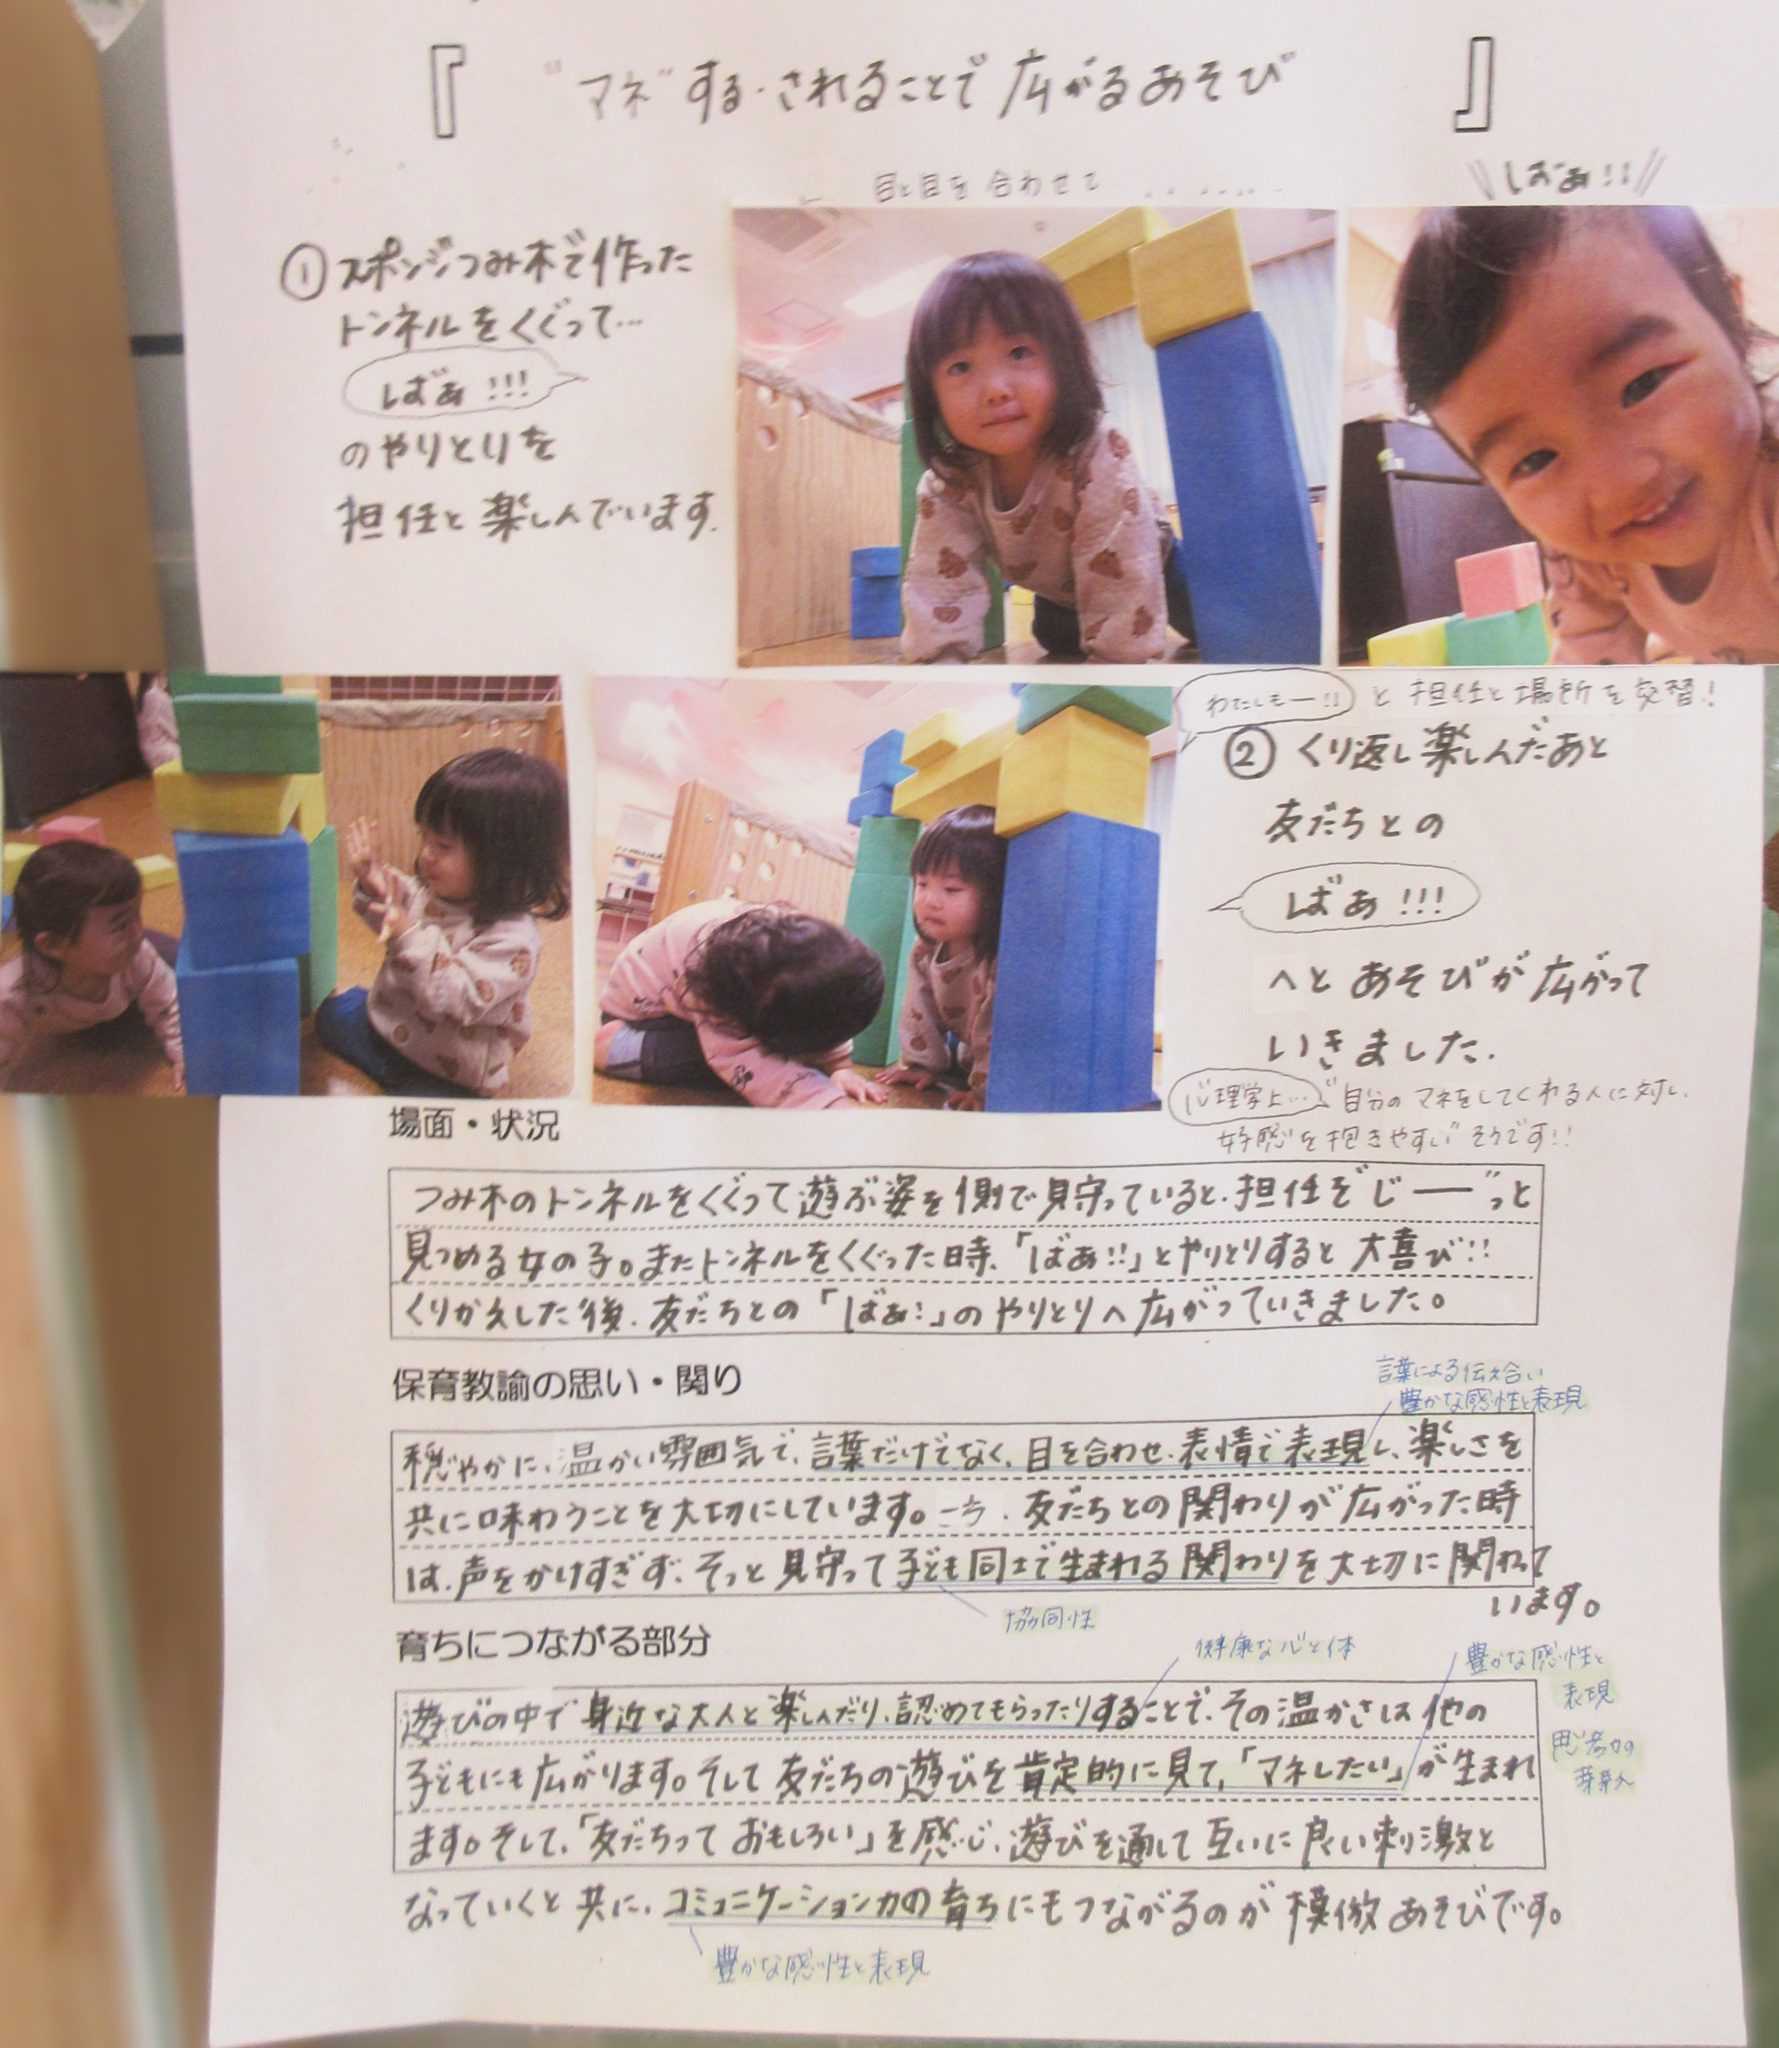 『 "マネ"する・されることで広がるあそび 』
目と目を合わせて・・・・・・
ばあ!!
① スポンジつみ木で作った
トンネルをくぐって…
ばあ!!!
のやりとりを
担任と楽しんでいます.
わたしもー!! と担任と場所を交替!
② くり返し楽しんだあと
友だちとの
ばあ!!!
へとあそびが広がって
いきました.
心理学上… "自分のマネをしてくれる人に対し、
好感を抱きやすい"そうです!!
場面・状況
つみ木のトンネルをくぐって遊ぶ姿を側で見守っていると、担任を"じーー"っと
見つめる女の子。またトンネルをくぐった時、「ばあ!!」とやりとりすると大喜び!!
くりかえした後、友だちとの「ばあ!」のやりとりへ広がっていきました。
保育教諭の思い・関り
言葉による伝え合い
豊かな感性と表現
穏やかに、温かい雰囲気で、言葉だけでなく、目を合わせ、表情で表現し、楽しさを
共に味わうことを大切にしています。こう、友だちとの関わりが広がった時
は、声をかけすぎず、そっと見守って子ども同士で生まれる関わりを大切に関わって
います。
協同性
育ちにつながる部分
健康な心と体
豊かな感性と
表現
思考力の
芽芽え
遊びの中で身近な大人と楽しんだり、認めてもらったりすることで、その温かさは他の
子どもにも広がります。そして友だちの遊びを肯定的に見て、「マネしたい」が生まれ
ます。そして、「友だちっておもしろい」を感じ、遊びを通して互いに良い刺激と
なっていくと共に、コミュニケーション力の育ちにもつながるのが模倣あそびです。
豊かな感性と表現